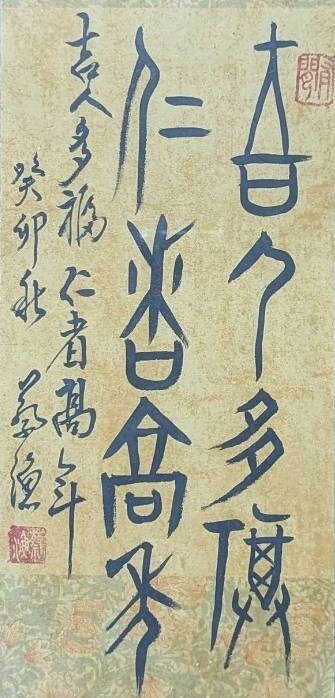 吉人多福
仁者高年
吉人多福 仁者高年
癸卯秋